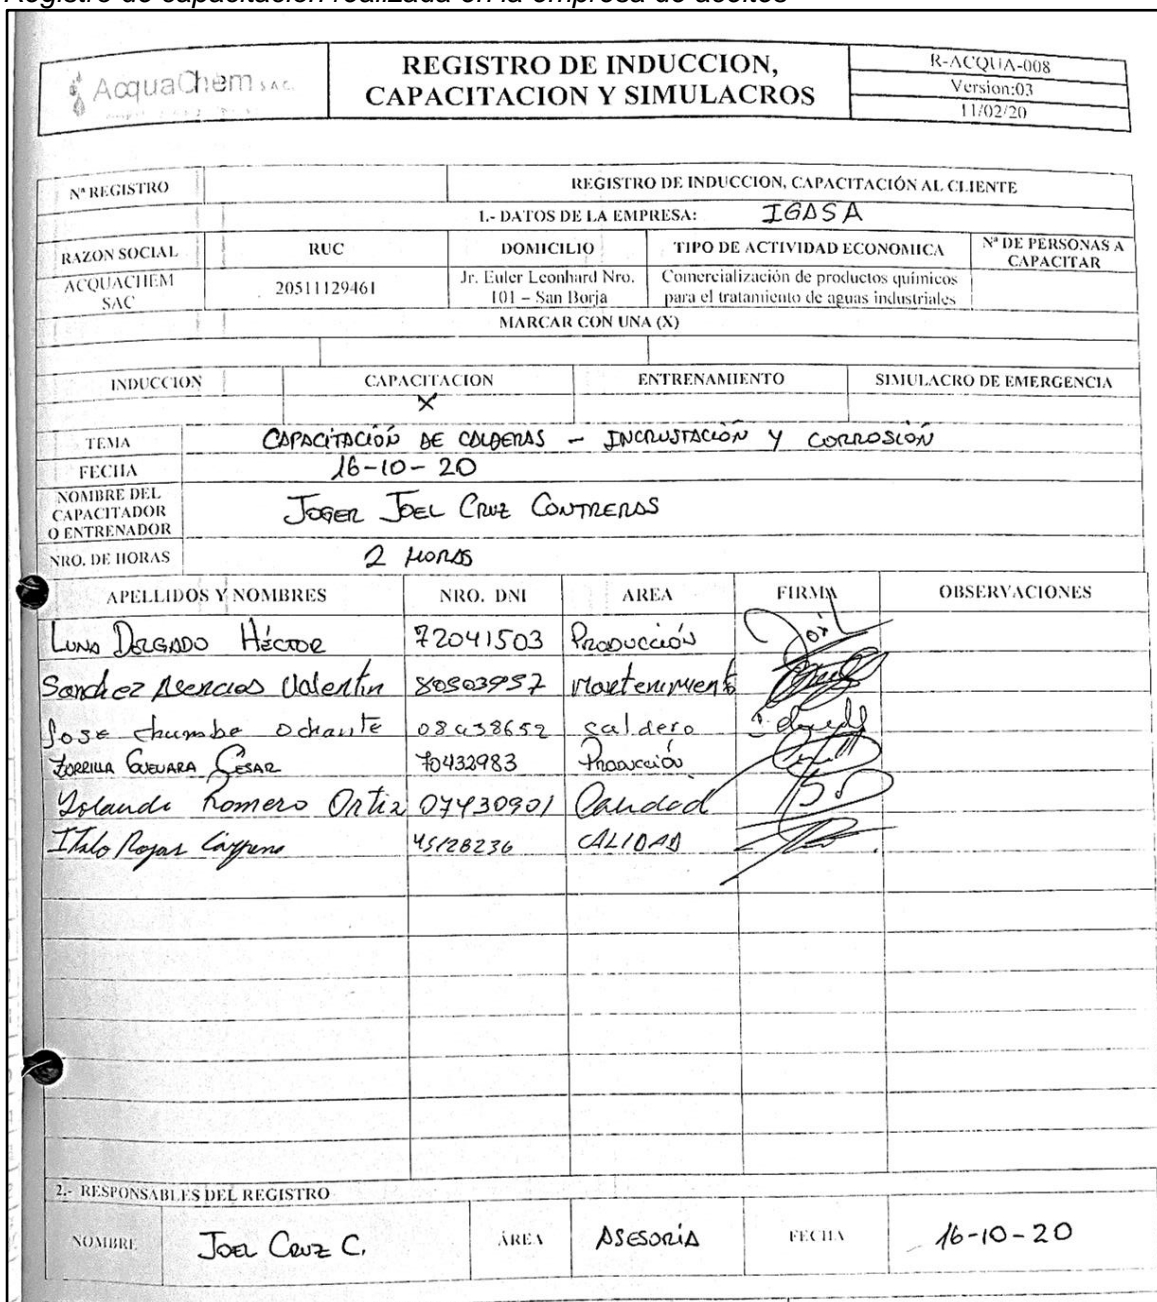 Registro de capacitación realizada en la empresa de aceites
AcquaChem S.A.C.
REGISTRO DE INDUCCION,
CAPACITACION Y SIMULACROS
R-ACQUA-008
Version:03
11/02/20
Nª REGISTRO
REGISTRO DE INDUCCION, CAPACITACIÓN AL CLIENTE
1.- DATOS DE LA EMPRESA: IGASA
RAZON SOCIAL RUC DOMICILIO TIPO DE ACTIVIDAD ECONOMICA Nª DE PERSONAS A CAPACITAR
ACQUACHEM SAC 20511129461 Jr. Euler Leonhard Nro. 101 – San Borja Comercialización de productos químicos para el tratamiento de aguas industriales
MARCAR CON UNA (X)
INDUCCION CAPACITACION ENTRENAMIENTO SIMULACRO DE EMERGENCIA
X
TEMA CAPACITACIÓN DE CALDERAS - INCRUSTACIÓN Y CORROSIÓN
FECHA 16-10-20
NOMBRE DEL CAPACITADOR O ENTRENADOR JOGER JOEL CRUZ CONTRERAS
NRO. DE HORAS 2 HORAS
APELLIDOS Y NOMBRES NRO. DNI AREA FIRMA OBSERVACIONES
LUNA DELGADO HÉCTOR 72041503 PRODUCCIÓN
Sanchez Asencios Valentin 80503957 Mantenimiento
Jose Chumbe Ochante caldero
ZORRILLA GUEVARA CESAR 70432983 Producción
Yolanda Romero Ortiz 07430901 Calidad
Italo Rojas 45128236 CALIDAD
2.- RESPONSABLES DEL REGISTRO
NOMBRE JOEL CRUZ C. ÁREA ASESORÍA FECHA 16-10-20